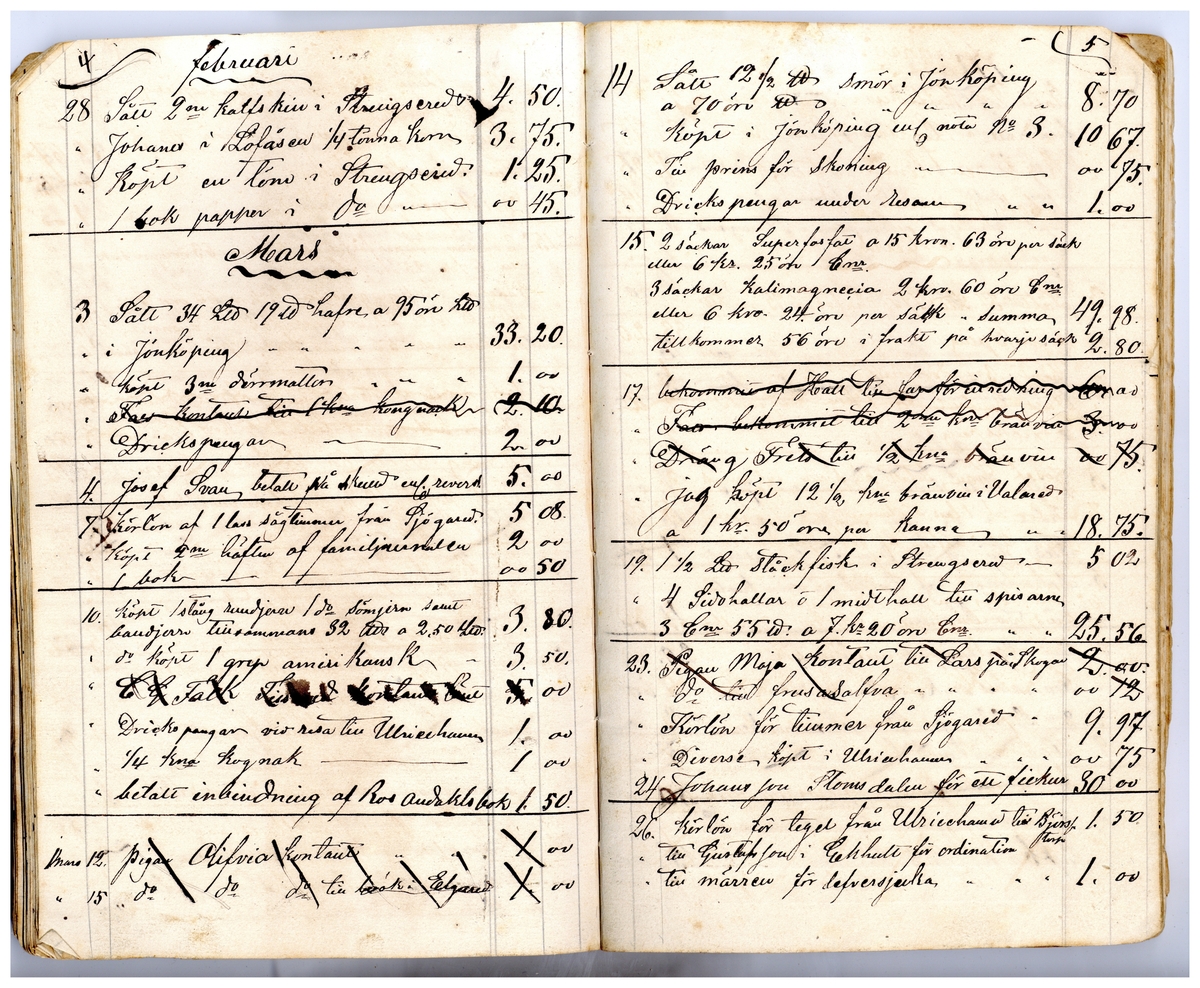 4
februari
28 Sålt 2ne kalfskin i Strengsered 4. 50.
" Johanes i Löfåsen 1/4 tonna korn 3. 75.
" Köpt en lom i Strengsered. 1. 25.
" 1 bok papper i do " 00 45.
Mars
3 Sålt 34 Lld 19 lld hafre, a 95 öre Lld
" i Jönköping " " " " " 33. 20.
" köpt 3ne dörrmattor " " " 1. 00
" Far kontant till 1 kna kongnack 2. 10.
" Drickspengar 2. 00
4. Josef Svan, betalt på skuld enl revers 5. 00
7. körlön af 1 lass sågtimmer från Sjögared. 5 08
" köpt 2ne häften af familjjurnalen 2 00
" 1 bok 00 50
10. köpt 1 stång rundjern 1 do sömjern samt
bandjern tillsammans 32 a 2,50 Lld. 3. 80.
" do köpt 1 gryp amirikansk " 3. 50.
" Falk kontant 5 00
" Drickspengar vid resa till Ulricehamn 1. 00
" 1/4 kna kognak 1 00
" betalt inbindning af Ros andaktsbok 1. 50.
Mars 12. pigan Olifvia kontant " " " 1 00
" 15 do do do till Elgared 1. 00
5
14 Sålt 12 1/2 lld smör i Jönköping
a 70 öre lld " " " " 8. 70
" köpt i Jönköping enl nota No 3. 10 67.
" Till prins för skoning 00 75.
" Drickspengar under resan " " 1. 00
15. 2 säckar Superfosfat a 15 kron. 63 öre per säck
eller 6 kr. 25 öre Cnr
3 säckar Kalimagnecia 2 kro. 60 öre Cnr
eller 6 kro. 24 öre per säkk " summa 49. 98.
tillkommer 56 öre i frakt på hvarje säck 2. 80.
17. bekommit af Hall till far för inredning 6 00
" Far bekommit till 2ne kna bränvin 3. 00
" Dräng Frets till 1/2 kna bränvin 00 75.
" jag köpt 12 1/2 kna bränvin i Valared
a 1 kr. 50 öre per kanna " " 18. 75.
19. 1 1/2 Lld ståckfisk i Strengsered 5 02
" 4 Sidohallar o 1 midthall till spisarne
3 Cnr 55 lld. a 7 kr 20 öre Cnr. " " 25. 56
23. Pigan Maja kontant till Lars på Skogen 2. 00.
" do till frusasalfva " " " " 00 12
" Körlön för timmer från Sjögared " 9. 97
" Diverse köpt i Ulricehamn " " " 00 75
24. Johans son Stomsdalen för ett fickur 30 00
26. Körlön för tegel från Ulricehamn till Björstorp 1. 50.
" till Gustafsson i Ekhult för ordination
" till märren för lefversjuka " " " 1. 00